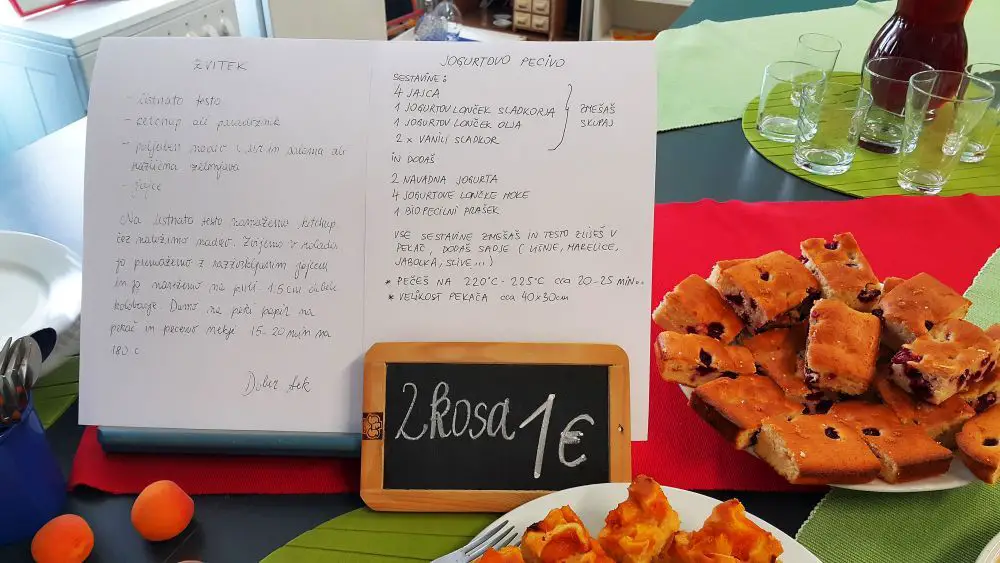 ZVITEK
- listnato testo
- ketchup ali paradižnik
- poljuben nadev: sir in salama ali
različna zelenjava
- jajce
Na listnato testo namažemo ketchup
čez naložimo nadev. Zvijemo v rolado
jo premažemo z razžvrkljanim jajcem
in jo narežemo na pribl. 1.5 cm debele
kolobarje. Damo na peki papir na
pekač in pečemo nekje 15-20 min na
180 c
Dober tek
JOGURTOVO PECIVO
SESTAVINE:
4 JAJCA
1 JOGURTOV LONČEK SLADKORJA
1 JOGURTOV LONČEK OLJA
2 x VANILI SLADKOR
ZMEŠAŠ
SKUPAJ
IN DODAŠ
2 NAVADNA JOGURTA
4 JOGURTOVE LONČKE MOKE
1 BIO PECILNI PRAŠEK
VSE SESTAVINE ZMEŠAŠ IN TESTO ZLIJEŠ V
PEKAČ, DODAŠ SADJE (VIŠNJE, MARELICE,
JABOLKA, SLIVE...)
* PEČEŠ NA 220°C - 225°C cca 20-25 MIN..
* VELIKOST PEKAČA cca 40x30cm
2 kosa 1€